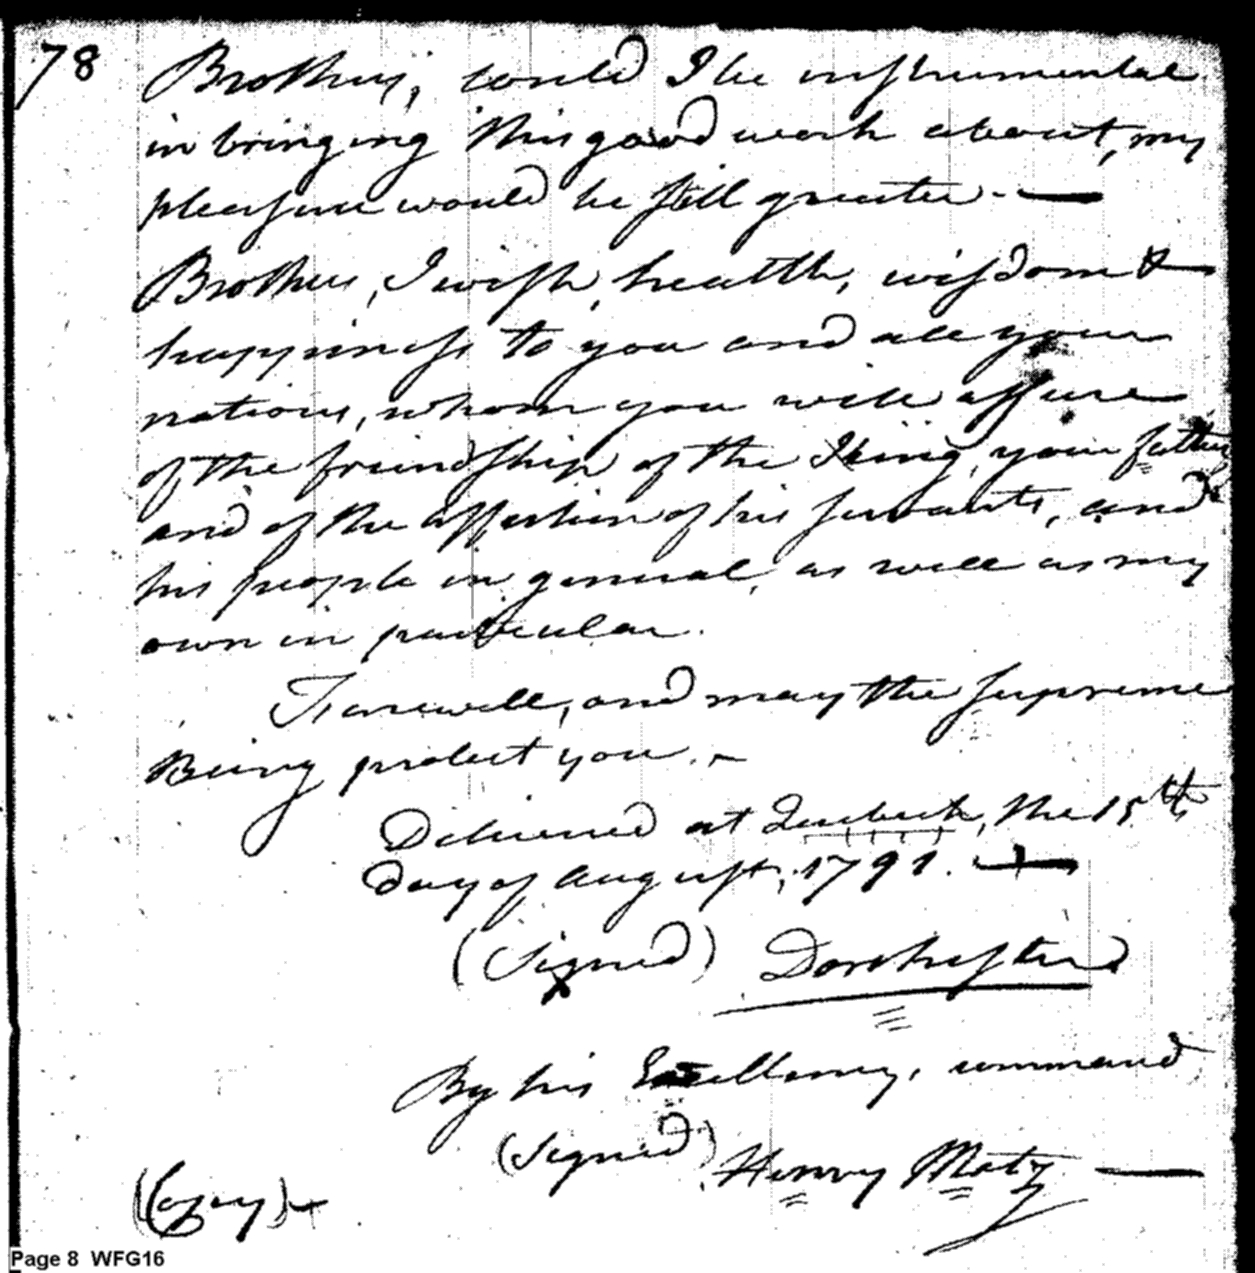 78
Brothers, could I be instrumental
in bringing this good work about, my
pleasure would be still greater. —
Brothers, I wish, health, wisdom &
happiness to you and all your
nations, whom you will assure
of the friendship of the King, your father
and of the affection of his servants, and
his people in general, as well as my
own in particular.
Farewell, and may the Supreme
Being protect you. –
Delivered at Quebeck, the 15th
day of August, 1791. —
(Signed) Dorchester
By his Excellency, command
(Signed) Henry Motz —
(Copy)
Page 8 WFG16